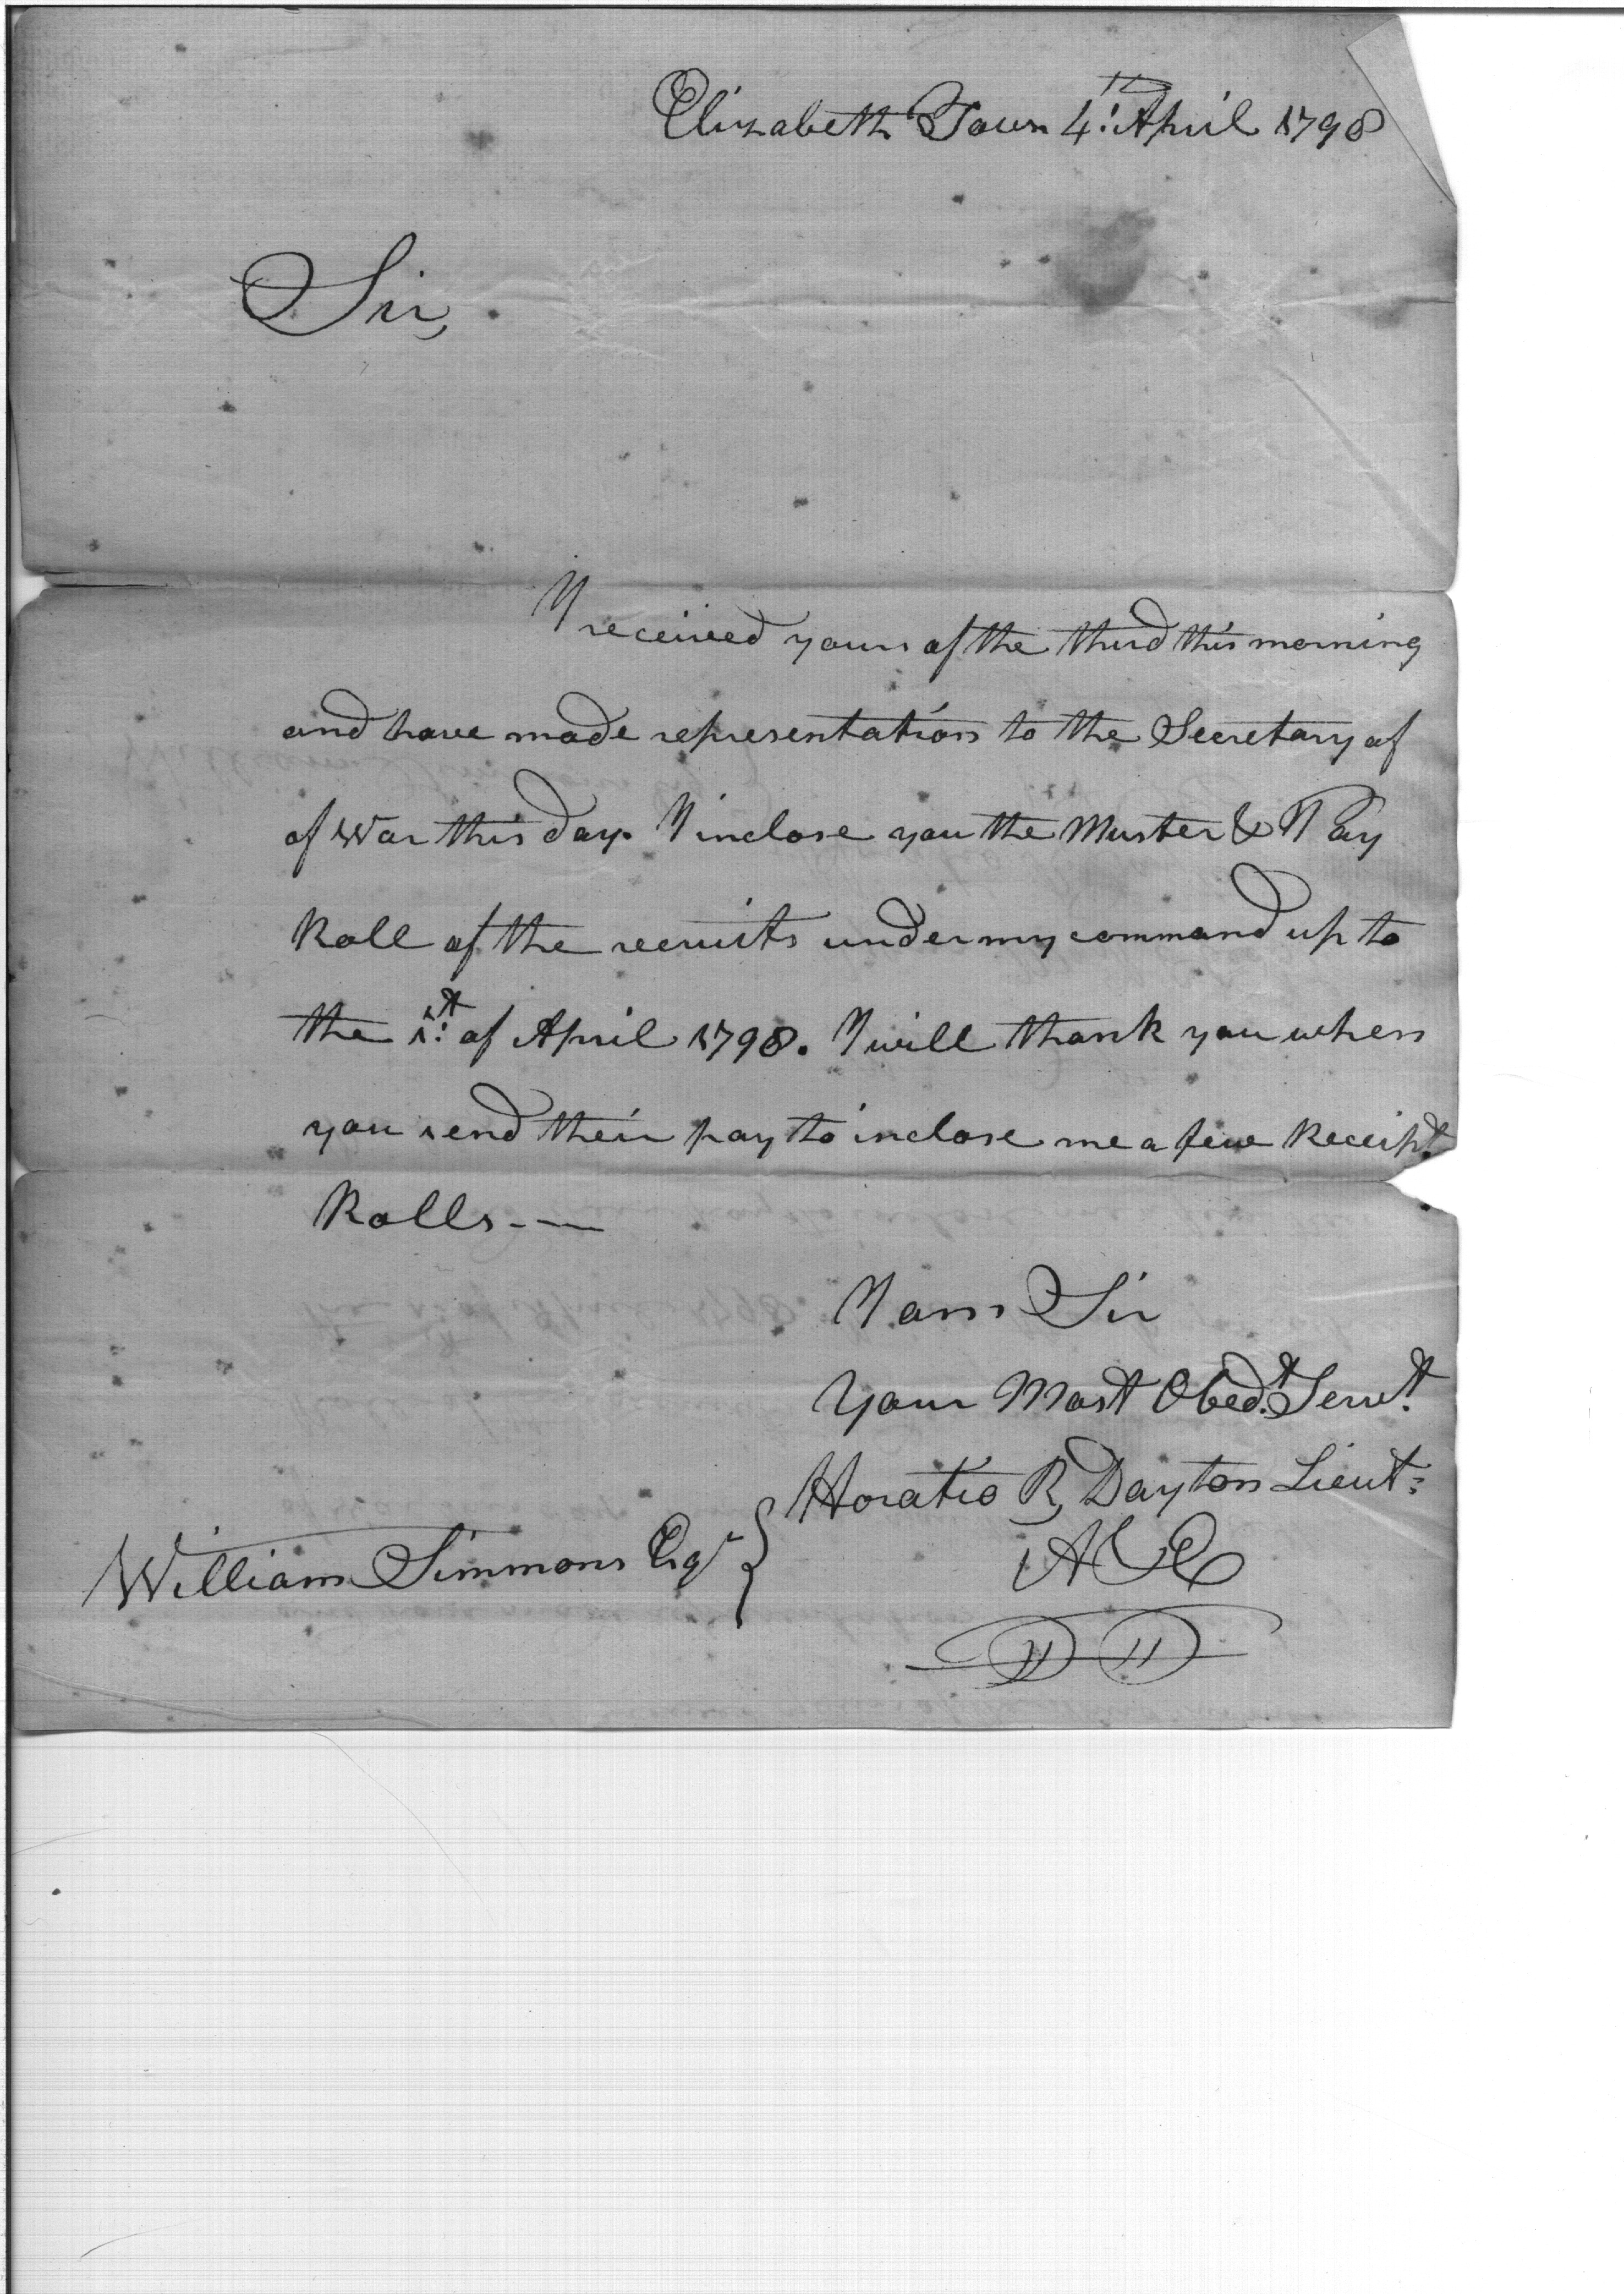 Elizabeth Town 4.th April 1798
Sir,
I received yours of the third this morning
and have made representation to the Secretary of
of War this day. I inclose you the Muster & Pay
Roll of the recruits under my command up to
the 1.st of April 1798. I will thank you when
you send their pay to inclose me a few Receipt
Rolls.——
I am Sir
Your Most Obed.t Serv.t
Horatio R, Dayton Lieut:
William Simmons Esqr }